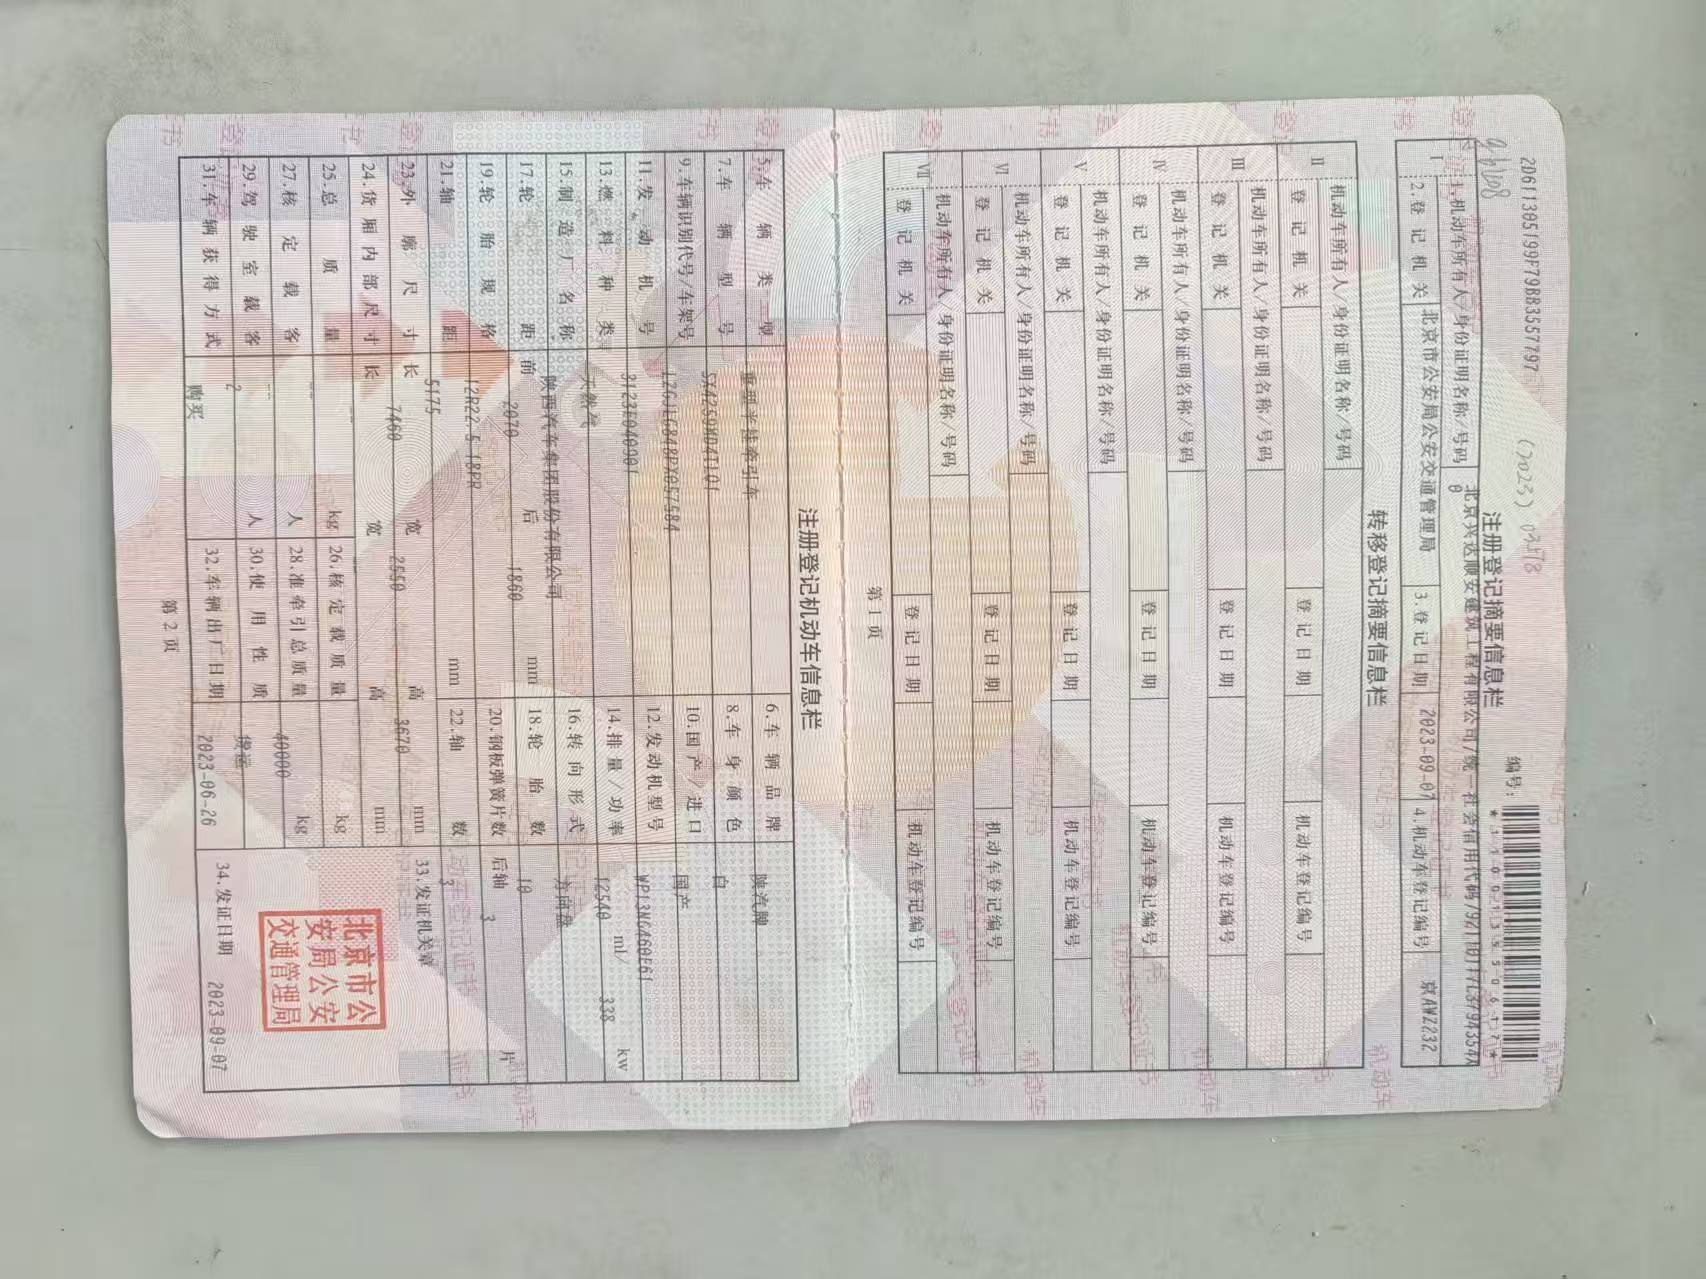 2D611305199F79BB3557797
(2023) 03578
注册登记摘要信息栏
编号:
*110025355067*
I
1.机动车所有人/身份证明名称/号码
北京兴达顺安建筑工程有限公司/统一社会信用代码/
2.登记机关
北京市公安局公安交通管理局
3.登记日期
2023-09-07
4.机动车登记编号
京AWZ232
转移登记摘要信息栏
II
机动车所有人/身份证明名称/号码
登记机关
登记日期
机动车登记编号
III
机动车所有人/身份证明名称/号码
登记机关
登记日期
机动车登记编号
IV
机动车所有人/身份证明名称/号码
登记机关
登记日期
机动车登记编号
V
机动车所有人/身份证明名称/号码
登记机关
登记日期
机动车登记编号
VI
机动车所有人/身份证明名称/号码
登记机关
登记日期
机动车登记编号
VII
机动车所有人/身份证明名称/号码
登记机关
登记日期
机动车登记编号
第1页
注册登记机动车信息栏
5.车辆类型
重型半挂牵引车
6.车辆品牌
陕汽牌
7.车辆型号
SX4259XD4TLQ1
8.车身颜色
白
9.车辆识别代号/车架号
LZGJLG848PX057584
10.国产/进口
国产
11.发动机号
3123E040901
12.发动机型号
WP13NG460E61
13.燃料种类
天然气
14.排量/功率
12540 ml/ 338 kw
15.制造厂名称
陕西汽车集团股份有限公司
16.转向形式
方向盘
17.轮距
前 2070 后 1860 mm
18.轮胎数
10
19.轮胎规格
12R22.5 18PR
20.钢板弹簧片数
后轴 3 片
21.轴距
5175 mm
22.轴数
3
23.外廓尺寸
长 7460 宽 2550 高 3670 mm
24.货厢内部尺寸
长 宽 高 mm
33.发证机关章
25.总质量
kg
26.核定载质量
kg
27.核定载客
-- 人
28.准牵引总质量
40000 kg
29.驾驶室载客
2 人
30.使用性质
货运
31.车辆获得方式
购买
32.车辆出厂日期
2023-06-26
34.发证日期
2023-09-07
北京市公
安局公安
交通管理局
第2页